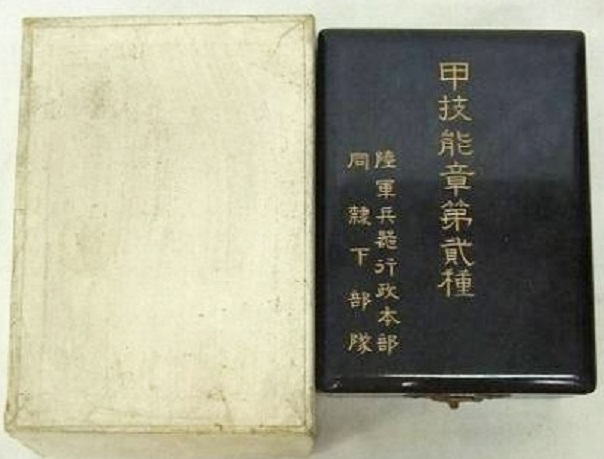 甲技能章第貳種
陸軍兵器行政本部
同隷下部隊